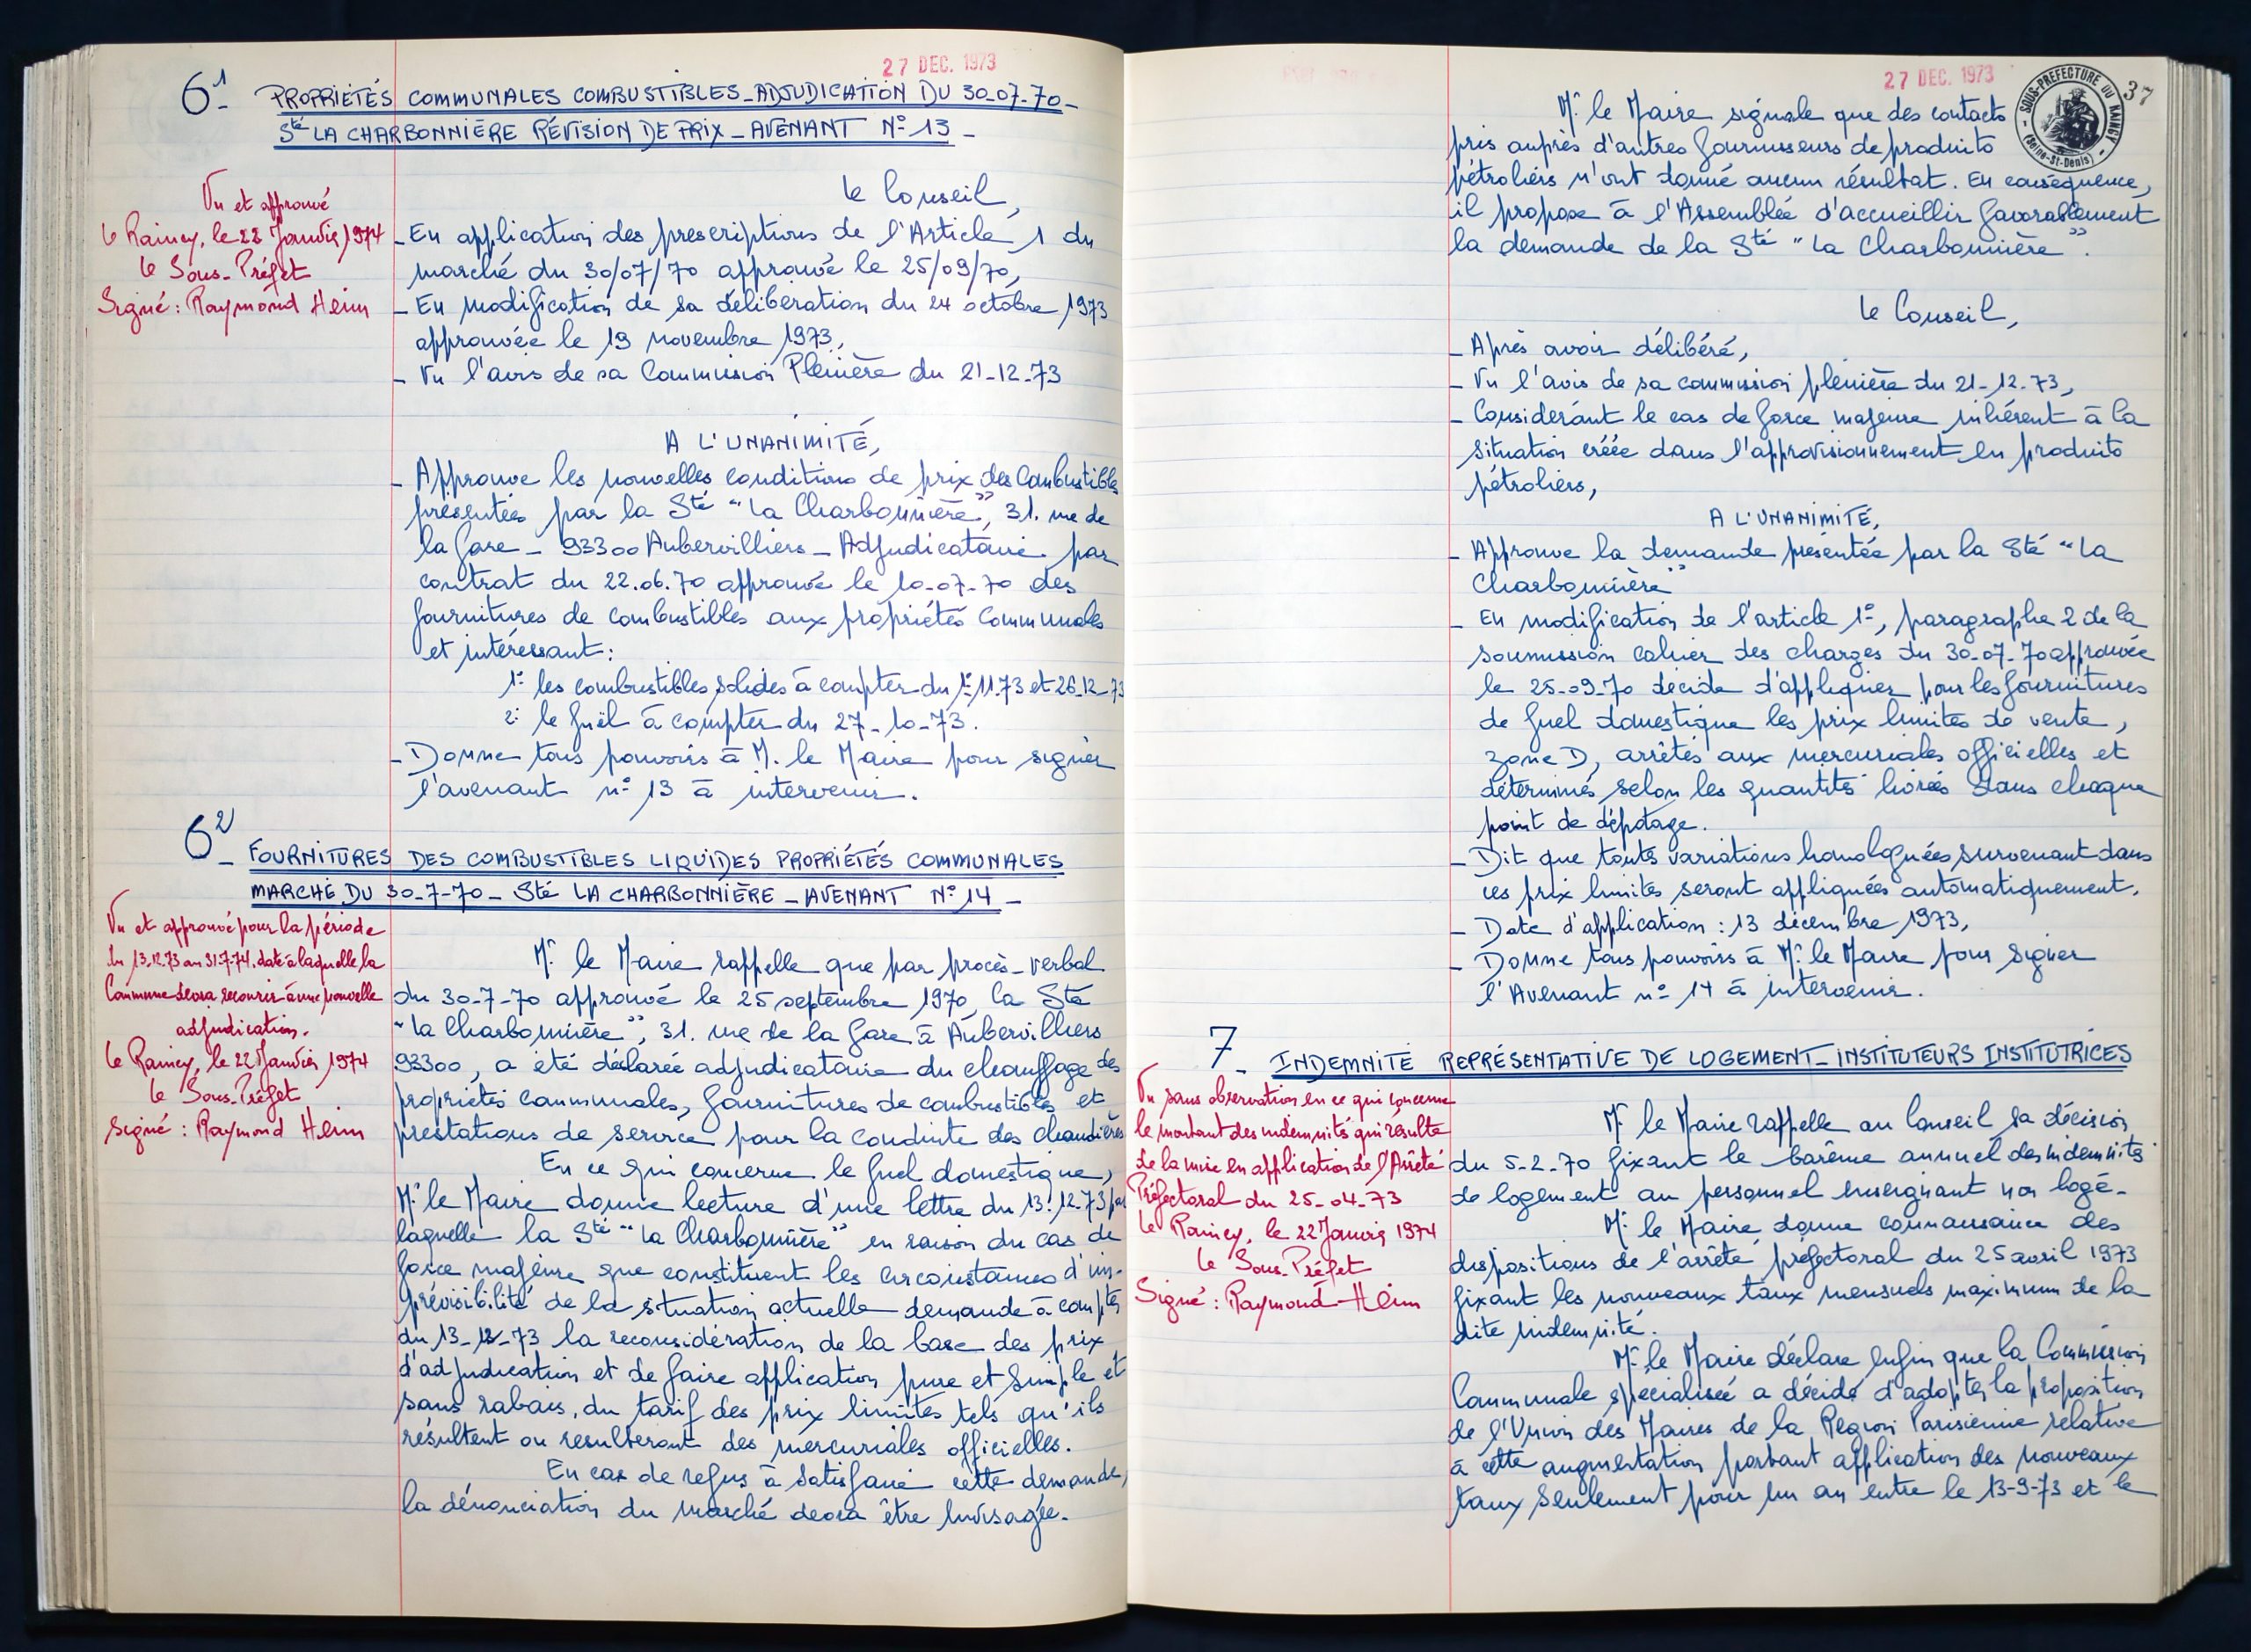 27 DEC. 1973
6¹- PROPRIÉTÉS COMMUNALES COMBUSTIBLES_ADJUDICATION DU 30-07-70_
Sté LA CHARBONNIÈRE RÉVISION DE PRIX _ AVENANT N° 13 _
Vu et approuvé
Le Raincy, le 22 Janvier 1974
Le Sous-Préfet
Signé : Raymond Heim
Le Conseil,
_ En application des prescriptions de l'Article 1 du
marché du 30/07/70 approuvé le 25/09/70,
_ En modification de sa délibération du 24 octobre 1973
approuvée le 19 novembre 1973,
_ Vu l'avis de sa Commission Plénière du 21-12-73
A L'UNANIMITÉ,
_ Approuve les nouvelles conditions de prix des Combustibles
présentées par la Sté "La Charbonnière", 31. rue de
la Gare _ 93300 Aubervilliers _ Adjudicataire par
contrat du 22.06.70 approuvé le 10-07-70 des
fournitures de combustibles aux propriétés Communales
et intéressant :
1° les combustibles solides à compter du 1° 11.73 et 26-12-73
2° le fuël à compter du 27-10-73.
_ Donne tous pouvoirs à M. le Maire pour signer
l'avenant n° 13 à intervenir.
6²_ FOURNITURES DES COMBUSTIBLES LIQUIDES PROPRIÉTÉS COMMUNALES
MARCHÉ DU 30-7-70 _ Sté LA CHARBONNIÈRE _ AVENANT N° 14 _
Vu et approuvé pour la période
du 13.12.73 au 31.7.74, date à laquelle la
Commune devra recourir à une nouvelle
adjudication.
Le Raincy, le 22 Janvier 1974
Le Sous-Préfet
Signé : Raymond Heim
Mr le Maire rappelle que par procès-verbal
du 30-7-70 approuvé le 25 septembre 1970, la Sté
"La Charbonnière", 31. rue de la Gare à Aubervilliers
93300, a été déclarée adjudicataire du chauffage des
propriétés communales, fournitures de combustibles et
prestations de service pour la conduite des chaudières
En ce qui concerne le fuel domestique,
Mr le Maire donne lecture d'une lettre du 13.12.73 par
laquelle la Sté "La Charbonnière" en raison du cas de
force majeure que constituent les circonstances d'im-
prévisibilité de la situation actuelle demande à compter
du 13-12-73 la reconsidération de la base des prix
d'adjudication et de faire application pure et simple et
sans rabais, du tarif des prix limites tels qu'ils
résultent ou resulteront des mercuriales officielles.
En cas de refus à satisfaire cette demande,
la dénonciation du marché devra être envisagée.
27 DEC. 1973
SOUS-PREFECTURE DU RAINCY
(Seine-St-Denis)
37
Mr le Maire signale que des contacts
pris auprès d'autres fournisseurs de produits
pétroliers n'ont donné aucun résultat. En conséquence,
il propose à l'Assemblée d'accueillir favorablement
la demande de la Sté "La Charbonnière".
Le Conseil,
_ Après avoir délibéré,
_ Vu l'avis de sa commission plénière du 21-12-73,
_ Considérant le cas de force majeure inhérent à la
situation créée dans l'approvisionnement en produits
pétroliers,
A L'UNANIMITÉ,
_ Approuve la demande présentée par la Sté "La
Charbonnière"
_ En modification de l'article 1°, paragraphe 2 de la
soumission cahier des charges du 30-07-70 approuvée
le 25-09-70 décide d'appliquer pour les fournitures
de fuel domestique les prix limites de vente,
zone D, arrêtés aux mercuriales officielles et
déterminés selon les quantités livrées dans chaque
point de dépotage.
_ Dit que toutes variations homologuées survenant dans
ces prix limites seront appliquées automatiquement.
_ Date d'application : 13 décembre 1973,
_ Donne tous pouvoirs à Mr le Maire pour signer
l'Avenant n° 14 à intervenir.
7_ INDEMNITÉ REPRÉSENTATIVE DE LOGEMENT_INSTITUTEURS INSTITUTRICES
Vu sans observation en ce qui concerne
le montant des indemnités qui résulte
de la mise en application de l'Arrêté
Préfectoral du 25-04-73
Le Raincy, le 22 Janvier 1974
Le Sous-Préfet
Signé : Raymond Heim
Mr le Maire rappelle au Conseil sa décision
du 5-2-70 fixant le barême annuel des indemnités
de logement au personnel enseignant non logé.
Mr le Maire donne connaissance des
dispositions de l'arrêté préfectoral du 25 avril 1973
fixant les nouveaux taux mensuels maximum de la
dite indemnité.
Mr le Maire déclare enfin que la Commission
Communale spécialisée a décidé d'adopter la proposition
de l'Union des Maires de la Région Parisienne relative
à cette augmentation portant application des nouveaux
taux seulement pour un an entre le 13-9-73 et le